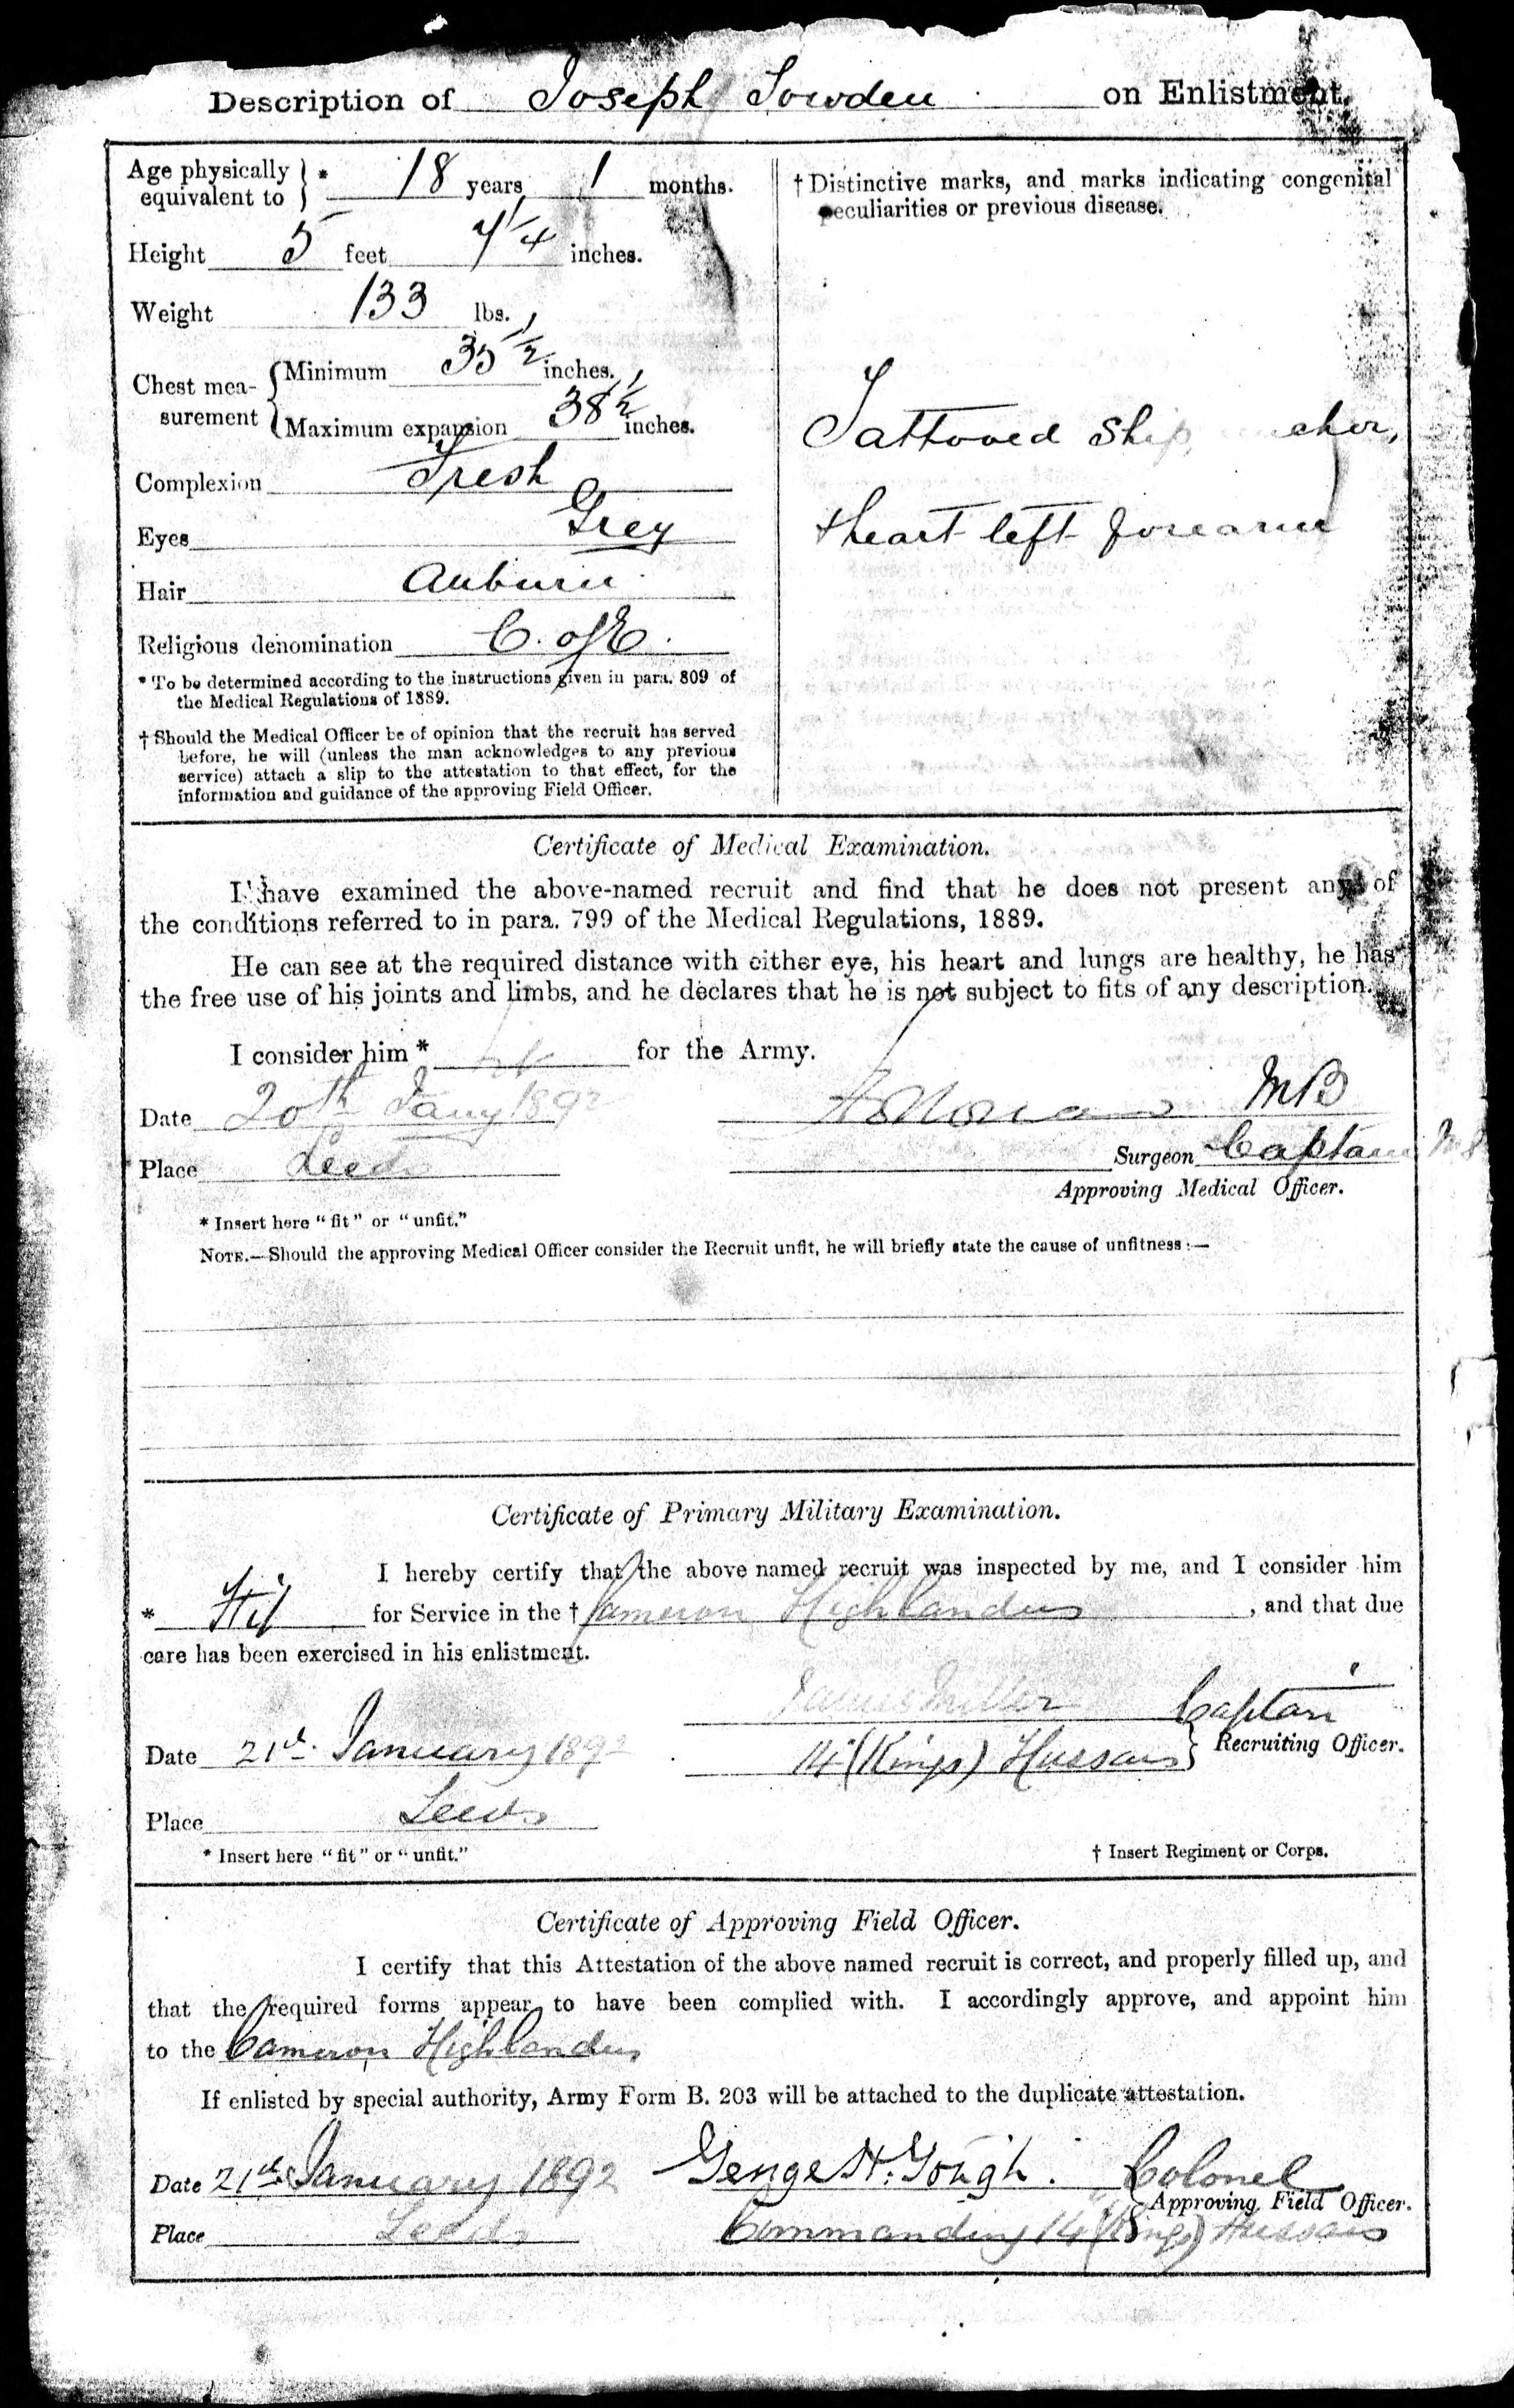 Description of Joseph Sowden on Enlistment.
Age physically equivalent to } * 18 years 1 months.
Height 5 feet 7 1/4 inches.
Weight 133 lbs.
Chest mea-surement { Minimum 35 1/2 inches.
Maximum expansion 38 1/2 inches.
Complexion Fresh
Eyes Grey
Hair Auburn
Religious denomination C. of E.
* To be determined according to the instructions given in para. 809 of
the Medical Regulations of 1889.
† Should the Medical Officer be of opinion that the recruit has served
before, he will (unless the man acknowledges to any previous
service) attach a slip to the attestation to that effect, for the
information and guidance of the approving Field Officer.
† Distinctive marks, and marks indicating congenital
peculiarities or previous disease.
Tattooed Ship,
heart left forearm
Certificate of Medical Examination.
I have examined the above-named recruit and find that he does not present any of
the conditions referred to in para. 799 of the Medical Regulations, 1889.
He can see at the required distance with either eye, his heart and lungs are healthy, he has
the free use of his joints and limbs, and he declares that he is not subject to fits of any description.
I consider him * for the Army.
Date 20th Jany 1892 MB
Place Leeds Surgeon Captain
Approving Medical Officer.
* Insert here "fit" or "unfit."
NOTE.—Should the approving Medical Officer consider the Recruit unfit, he will briefly state the cause of unfitness:—
Certificate of Primary Military Examination.
I hereby certify that the above named recruit was inspected by me, and I consider him
* Fit for Service in the † Cameron Highlanders, and that due
care has been exercised in his enlistment.
James Miller Captain
Date 21st January 1892 14 (Kings) Hussars } Recruiting Officer.
Place Leeds
* Insert here "fit" or "unfit."
† Insert Regiment or Corps.
Certificate of Approving Field Officer.
I certify that this Attestation of the above named recruit is correct, and properly filled up, and
that the required forms appear to have been complied with. I accordingly approve, and appoint him
to the Cameron Highlanders
If enlisted by special authority, Army Form B. 203 will be attached to the duplicate attestation.
Date 21st January 1892 George H. Gough. Colonel
Approving Field Officer.
Place Leeds Commanding 14 (Kings) Hussars